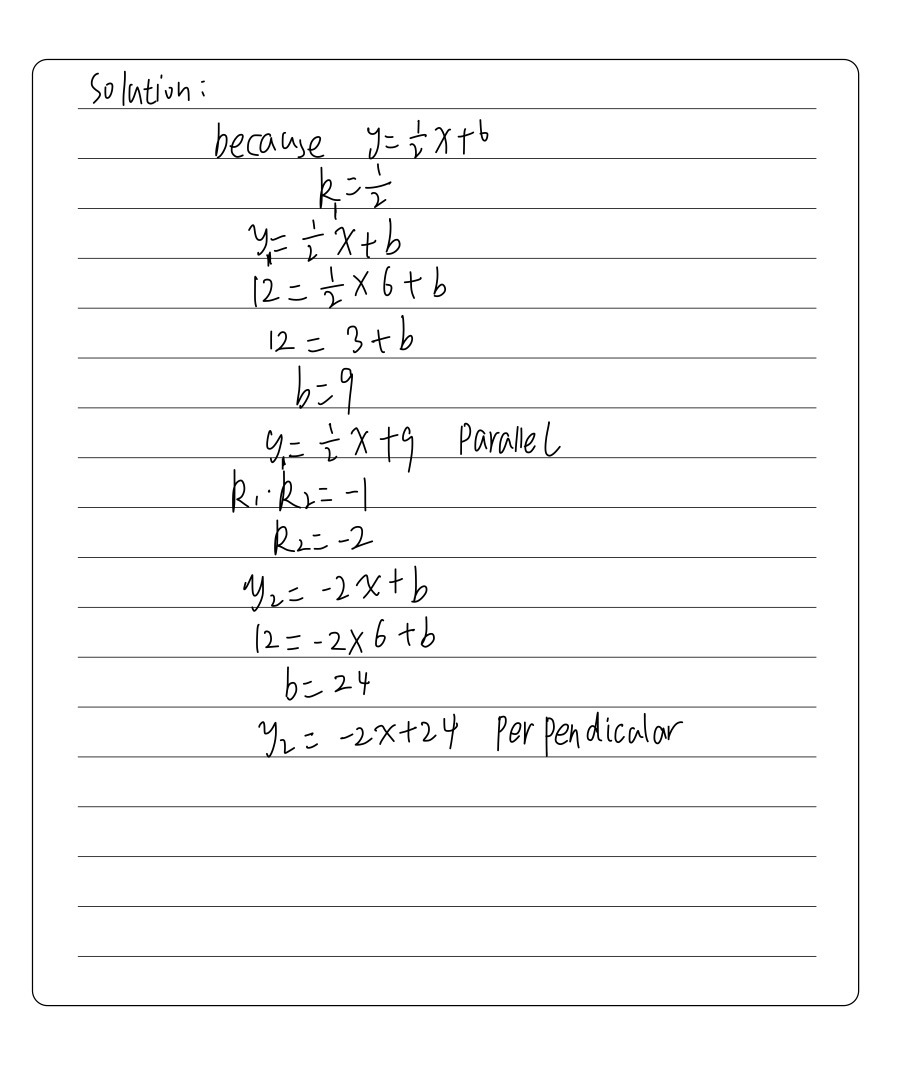 Solution:
because y = 1/2 x + 6
k₁ = 1/2
y₁ = 1/2 x + b
12 = 1/2 × 6 + b
12 = 3 + b
b = 9
y₁ = 1/2 x + 9 Parallel
k₁ · k₂ = -1
k₂ = -2
y₂ = -2x + b
12 = -2 × 6 + b
b = 24
y₂ = -2x + 24 Perpendicalar